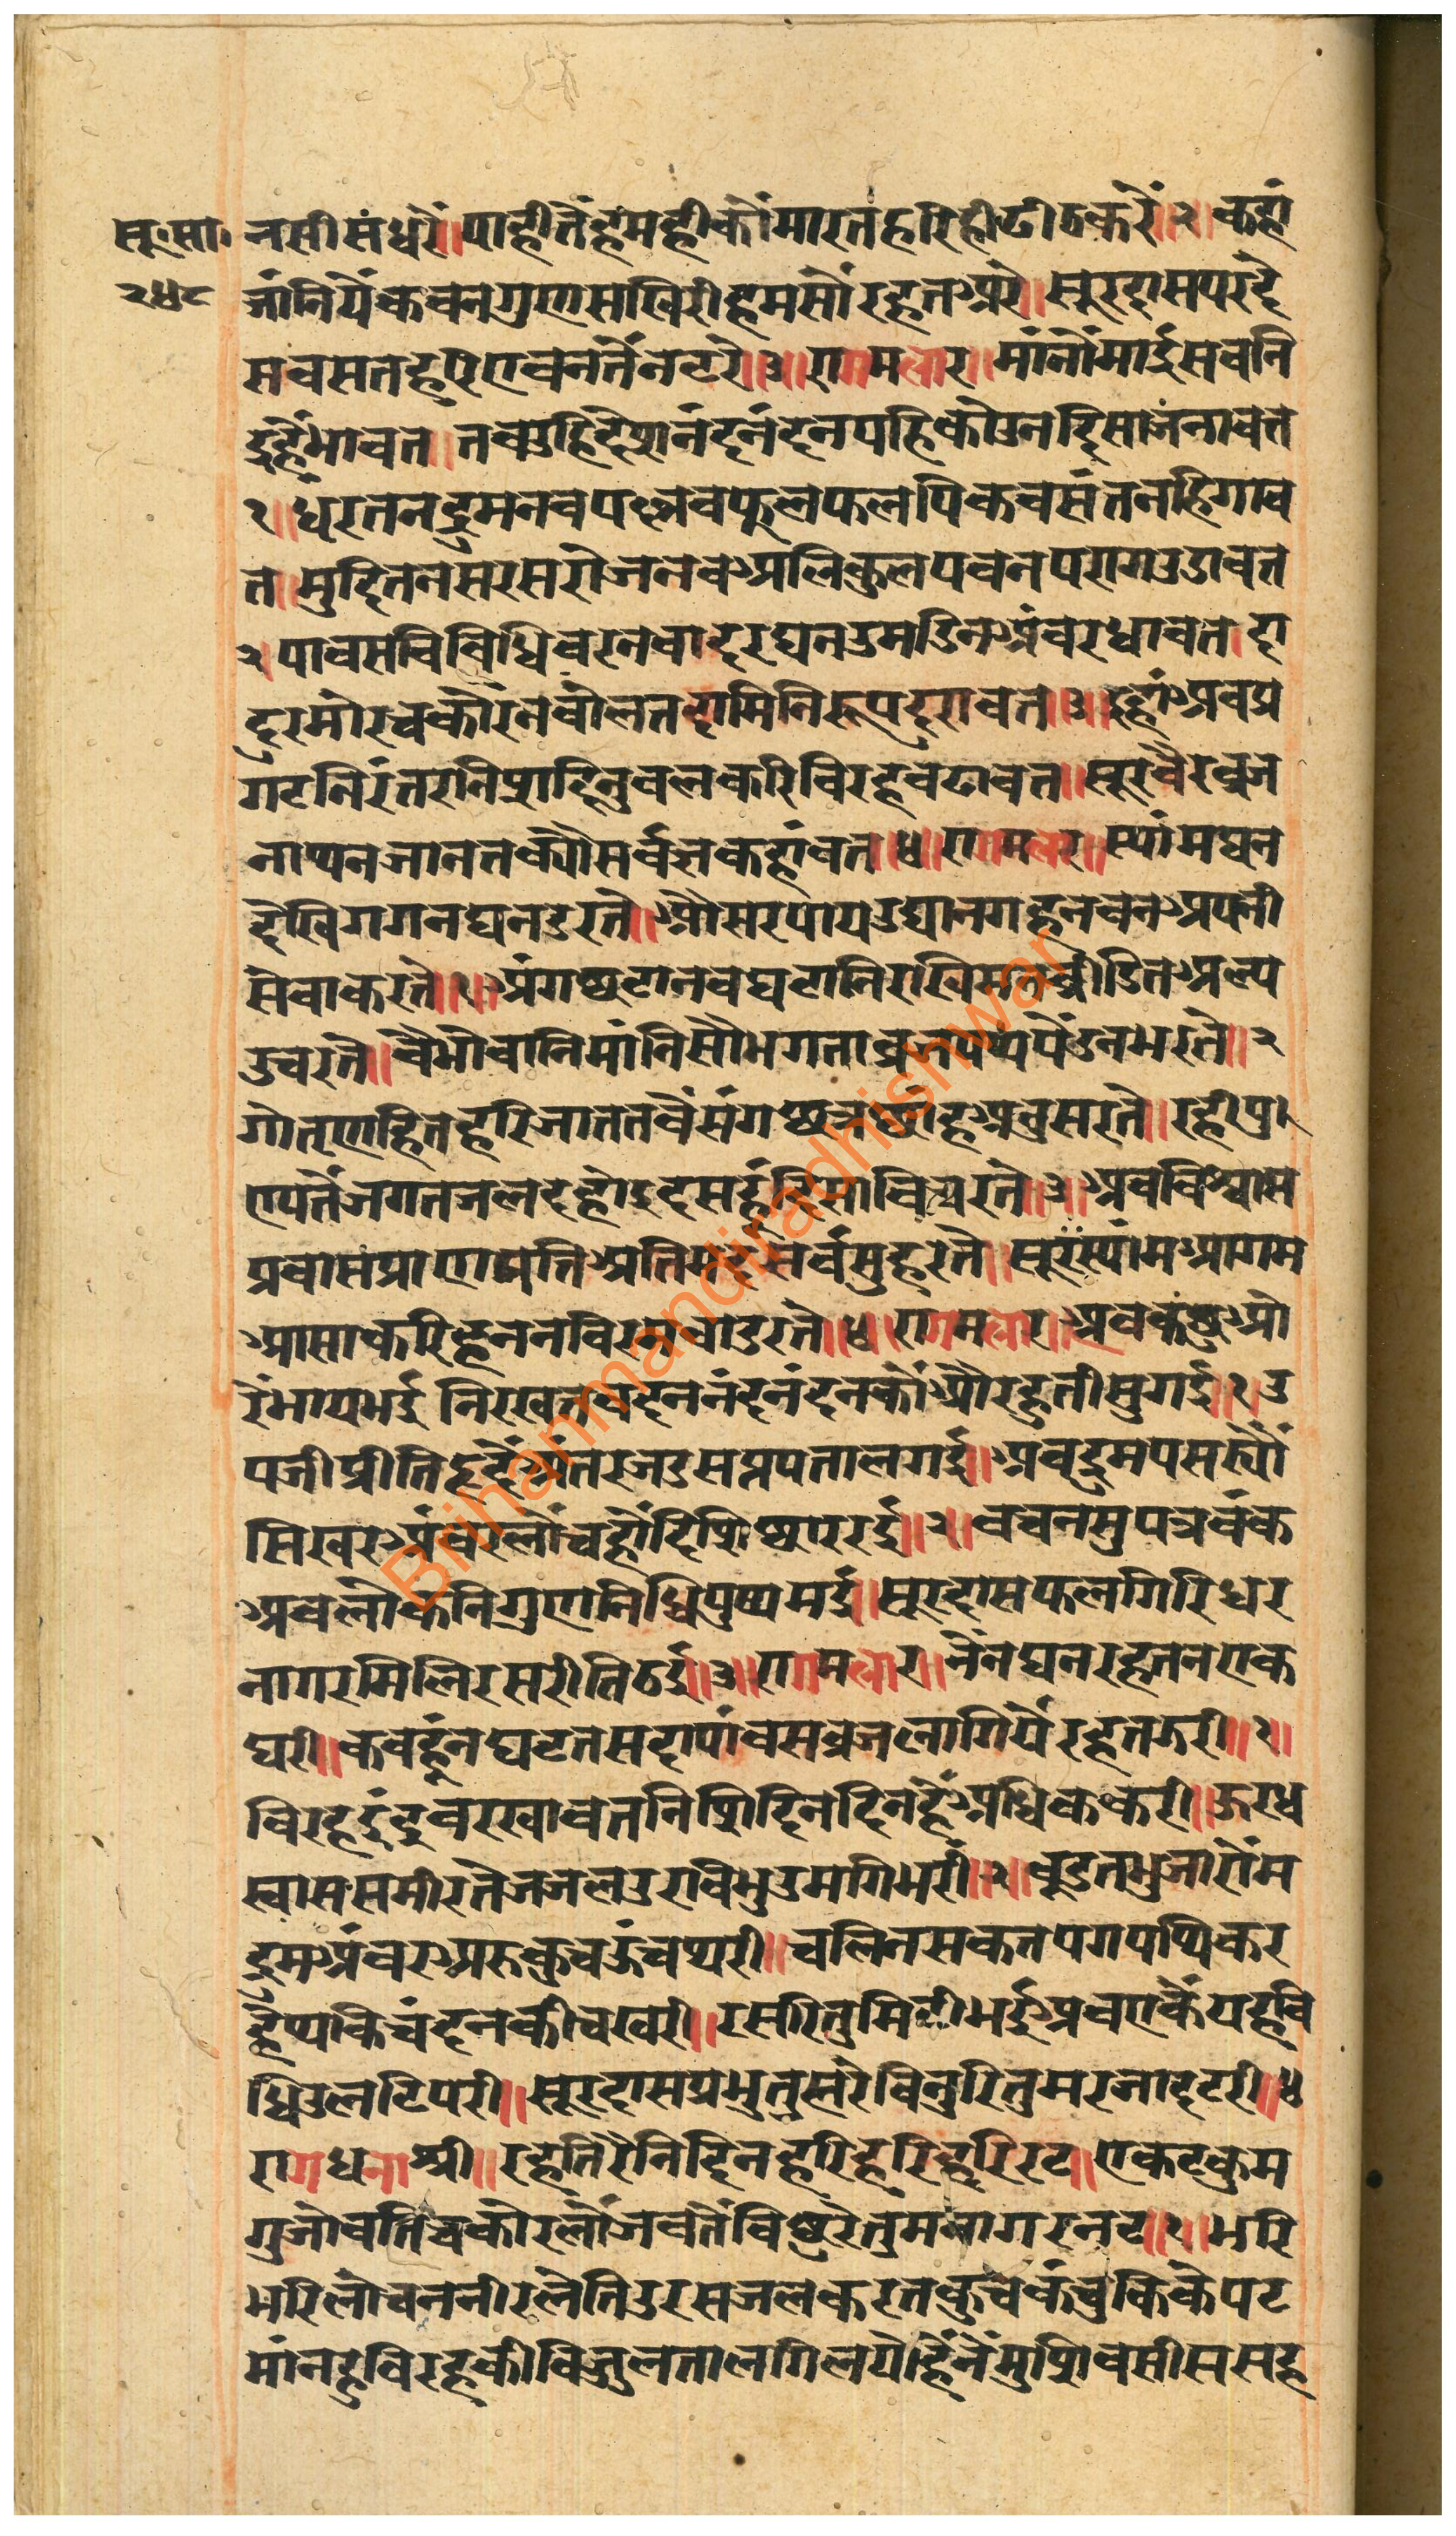 सू.सा. नसीसंधरैं॥पाहीतैंहमहीकौंमारतहरिहीढीठकरैं॥२॥कहां
२५८ जांनियैंकवनगुणसखिरीहमसौंरहतअरे॥सूरदासपरदे
सवसतहरिएवनतैंनटरे॥३॥रागमलार॥मांनौंमाईसवनि
इहैंभावत॥तवउहिदेसनंदनंदनपहिकोउनदिसाजनावत
१॥धरतनद्रुमनवपल्लवफुलफलपिकवसंतनहिगाव
त॥मुदितनसरसरोजनवअलिकुलपवनपरागउडावत
२पावसविविधिवरनवादरघनउमडिनअंवरधावत।दा
दुरमोरचकोरनवोलतदामिनिरूपदुरावत॥३॥इहांअवप्र
गटनिरंतरनिप्रादिनुवलकरिविरहवढावत॥सूरवैरव्रज
नाथनजानतक्यौसर्वज्ञकहांवत॥४॥रागमलार॥स्यांमघन
देखिगगनघनडरते॥औसरपायउद्यानगहनवनअपनी
सेवाकरते॥१॥अंगछटानवघटानिरखिसतव्रीडितअल्प
उचरतै॥वैभौवानिमांनिसौभगताव्रजपथपैंडनभरते॥२
गोतृणहितहरिजाततवैसंगछत्रछाहअनुसरते॥रहीपु
एयतैंजगतजलदहोदुदसहंदिसाविथरते॥३॥अवविश्वास
प्रवासप्राणपतिअतिमदसर्वसुहरतै॥सूरस्यांमआगम
आसाकरिहननविरमवोडरते॥४॥रागमलार॥अवकछुऔ
रेंभायभई॥निरखतवदननंदनंदनकौंऔरहुतीसुगई॥१॥उ
पजीप्रीतिहृदैंअंतरजउसप्तपतालगई॥अवद्रुमपसर्यौं
सिखरअंवरलौंचहौंदिशिछायरई॥२॥वचनसुपत्रवंक
अवलोकनिगुणनिधिपुष्पमई॥सूरदासफलगिरिधर
नागरमिलिरसरीतिठई॥३॥रागमलार॥नैंनघनरहतनएक
घरी॥कवहूंनघटतसदापांवसव्रजलागियैरहतझरी॥१॥
विरहइंद्रुवरखावतनिशिदिनदिनहैंअधिककरी॥ऊरध
स्वाससमीरतेजजलउरविभुउमगिभरी॥२॥वूडतभुजारोम
द्रुमअंवरअरुकुचऊंचथरी॥चलिनसकतपगपथिकर
हेथकिचंदनकीचखरी॥रसरितुमिटीभईअवएकैयहवि
धिउलटिपरी॥सूरदासप्रभुतुह्मरेविनुरितुमरजादटरी॥४
रागधनाश्री॥रहेतिरैनिदिनहरिहरिहरिरट॥एकटकुम
गुजोवतिचकोरलौंजवतैंविछुरेतुमनागरनट॥१॥भरि
भरिलोचननीरलेतिउरसजलकरतकुचकंचुकिकेपट
मांनहुविरहकीविजुलतालगिलयोहैंनेंमुशिवसीससह